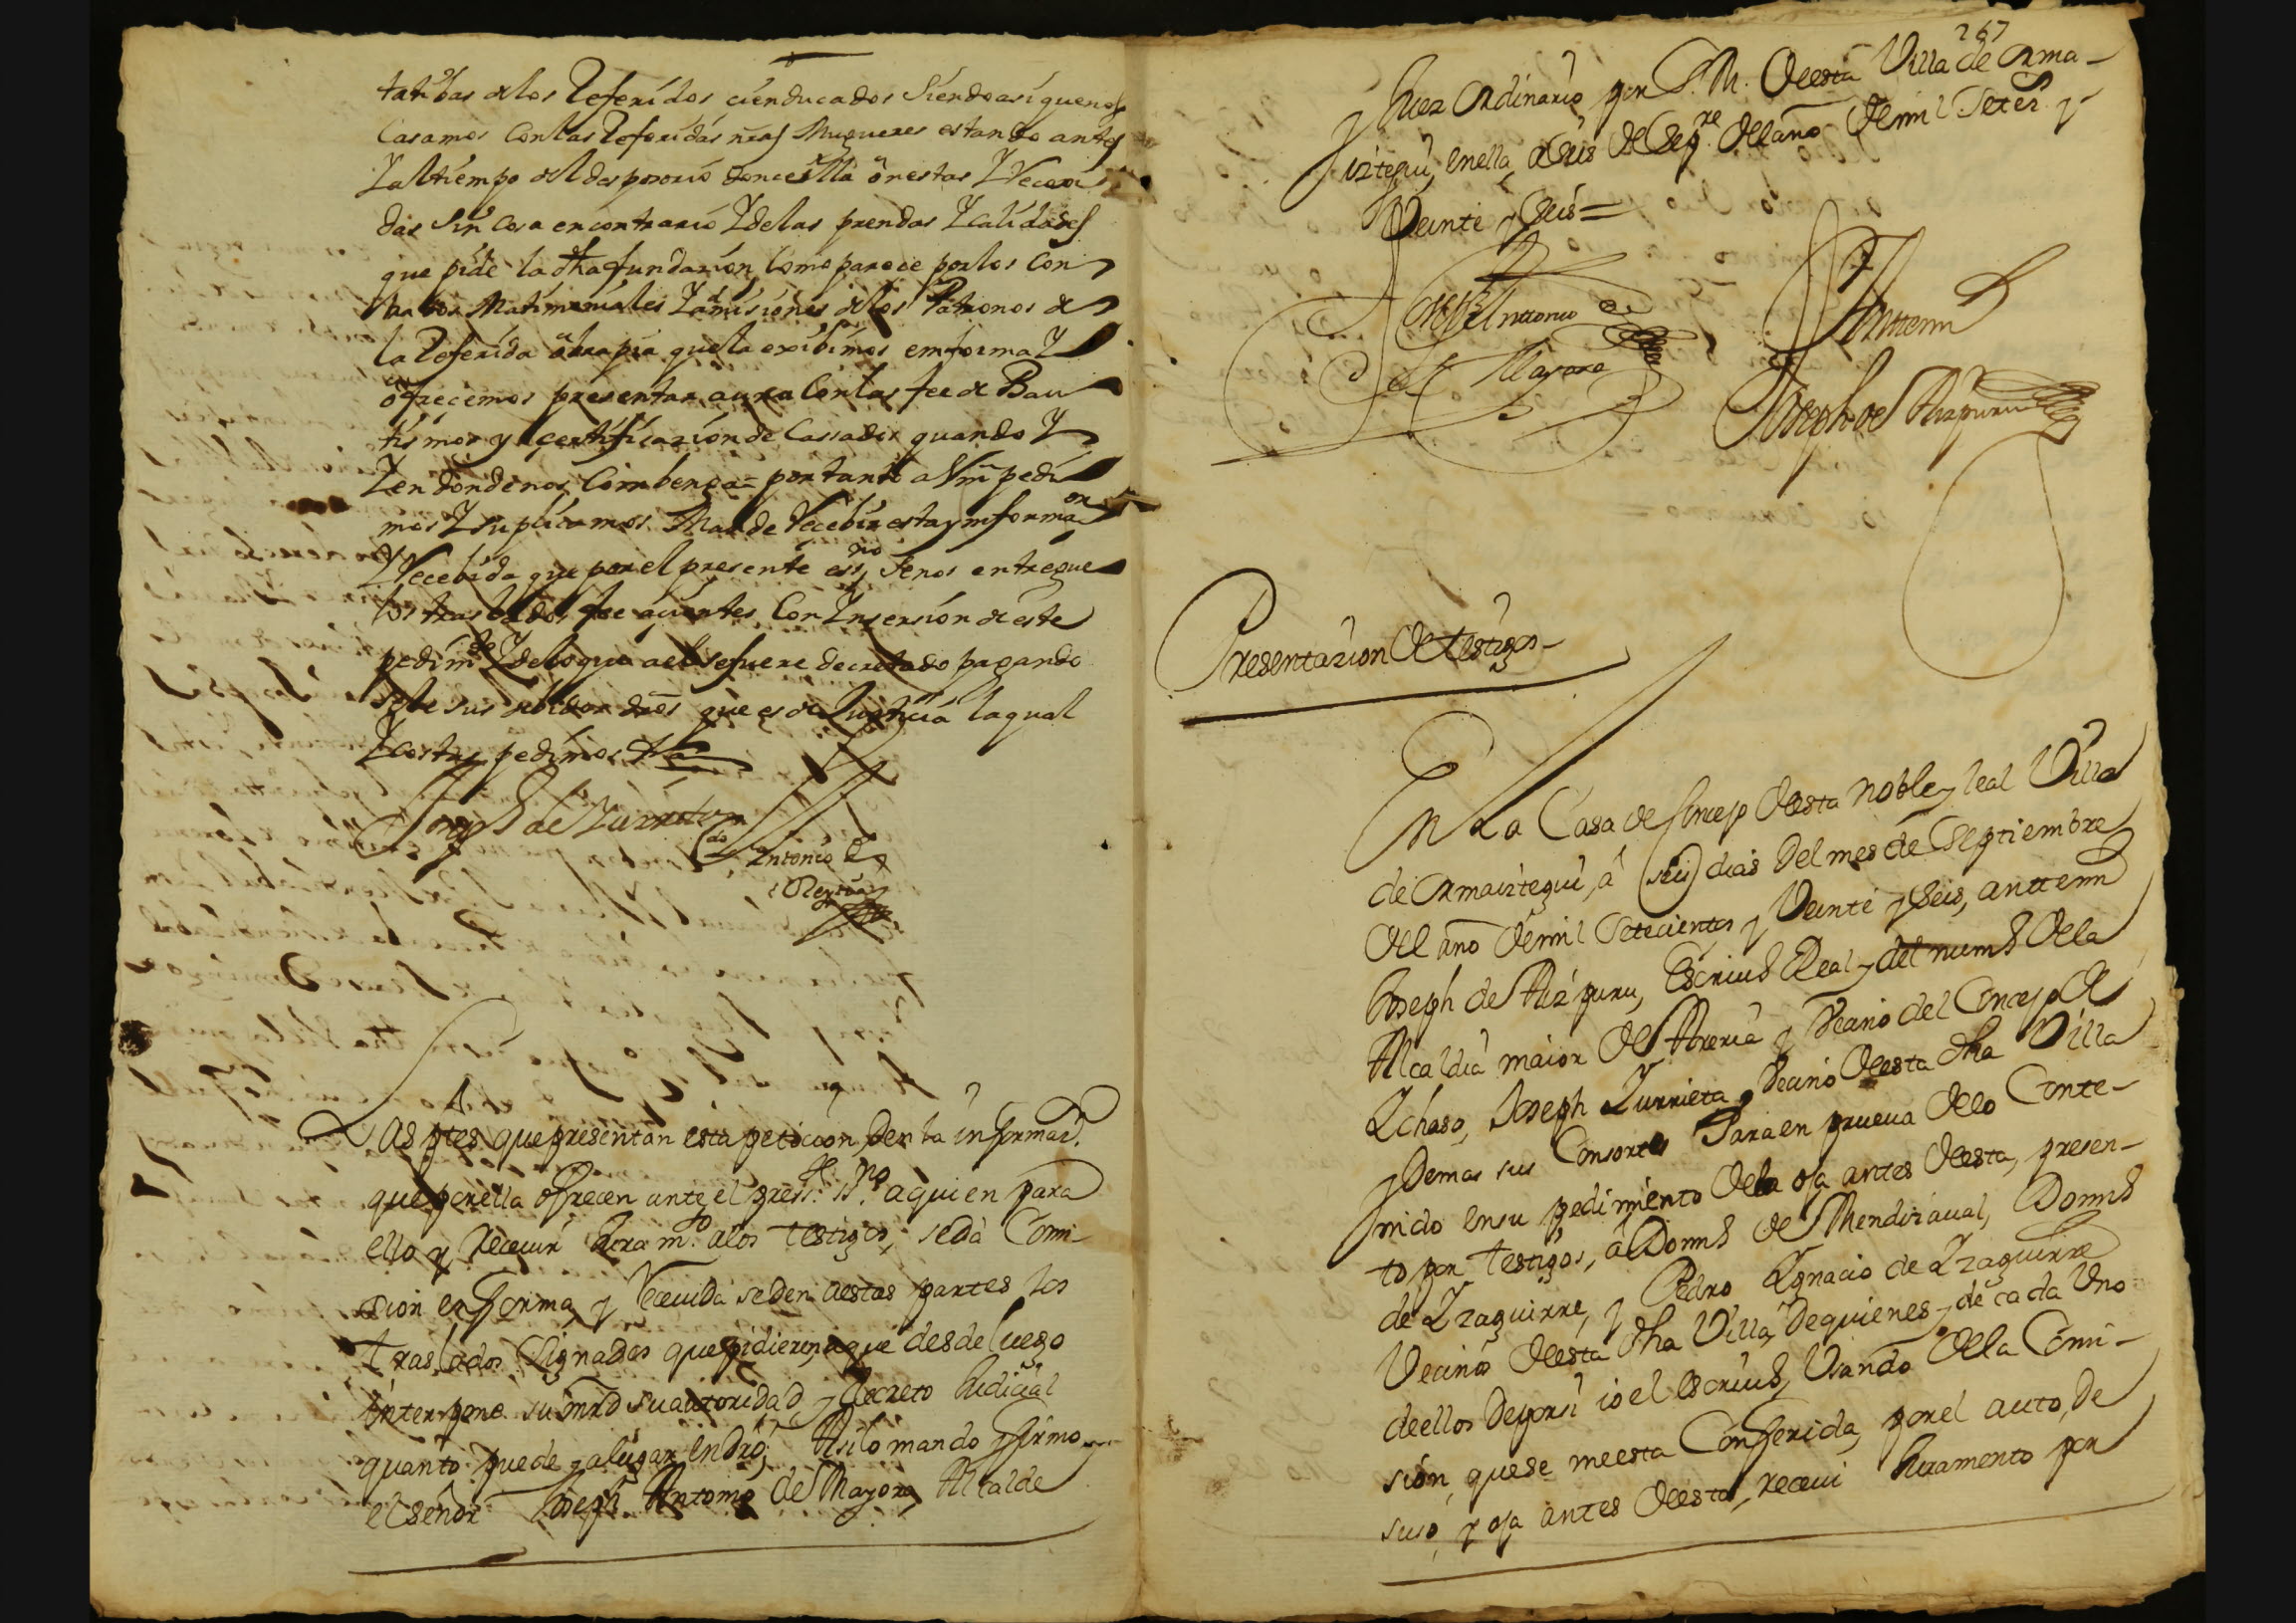 tatibas de los Referidos cienducados Siendo asi que nos
Casamos Con las Referidas nras Mugueres estando antes
Y al tiempo del desposorio doncella onestas Y Recoxi
das Sin Cosa en contrario Y de las prendas Y calidades
que pide la dha fundacion Como parece por los Con
tratos Matrimoniales Y amisiones de los Patronos de
la Referida obra pia que la exibimos em forma Y
ofrecemos presentar aura Con las fee de Bau
tismos y certificacion de Cassados quando Y
Y en donde nos Combenga = por tanto a Vm pedi
mos Y suplicamos Mande Recebir esta ynforma on
Y Recebida que por el presente essno Se nos entregue
los traslados fee acientes Con Ynsersion de este
pedimto Y de lo que a el se fuere decretado pagando
sele sus debidos dros que es de Justicia la qual
Y costas pedimos dha
Joseph de Zurrieta
Ldo Antonio de
Las ptes que presentan esta peticion, Den la informazn.
que por ella ofrecen ante el press.te ss.no a quien para
ello y Receuir Jura m.to a los Testigos, se da Comi-
sion en forma, y Receuida se den a estas partes los
traslados Signados que pidieren, a que desde luego
interpone su mrd su autoridad y decreto Judicial
quanto puede y a lugar en dro; Asilo mando y firmo
el señor Joseph Antonio de Mayora, Alcalde
267
y Juez Ordinario por S. M. de esta Villa de Orma-
iztegui, en ella, a Seis de Sep.re del año de mil Setes. y
Veinte y Seis =
Joseph Antonio de
Mayora
Anttemi
Joseph de Aizpuru
Presentazion de testigos -
En La Casa de Concejo de esta noble y leal Villa
de Ormaiztegui, á (seis) dias del mes de Septiembre
del año de mil Setecientos y Veinte y Seis, anttemi
Joseph de Aizpuru, Escriuo Real y del numo de la
Alcaldia maior de Areria y Vecino del Concejo de
Ychaso, Joseph Zurrieta, Vecino de esta dha Villa
y Demas sus Consortes Para en prueua de lo Conte-
nido en su pedimiento de la oja antes de esta, presen-
to por testigos, á Domo de Mendizaual, Domo
de Yzaguirre, y Pedro Ygnacio de Yzaguirre
Vecinos de esta dha Villa, De quienes y de cada Uno
de ellos De por si io el escriuo, Usando de la Comi-
sion, que se me esta Conferida, por el auto, de
suso, y oja antes de esta, receui Juramento por